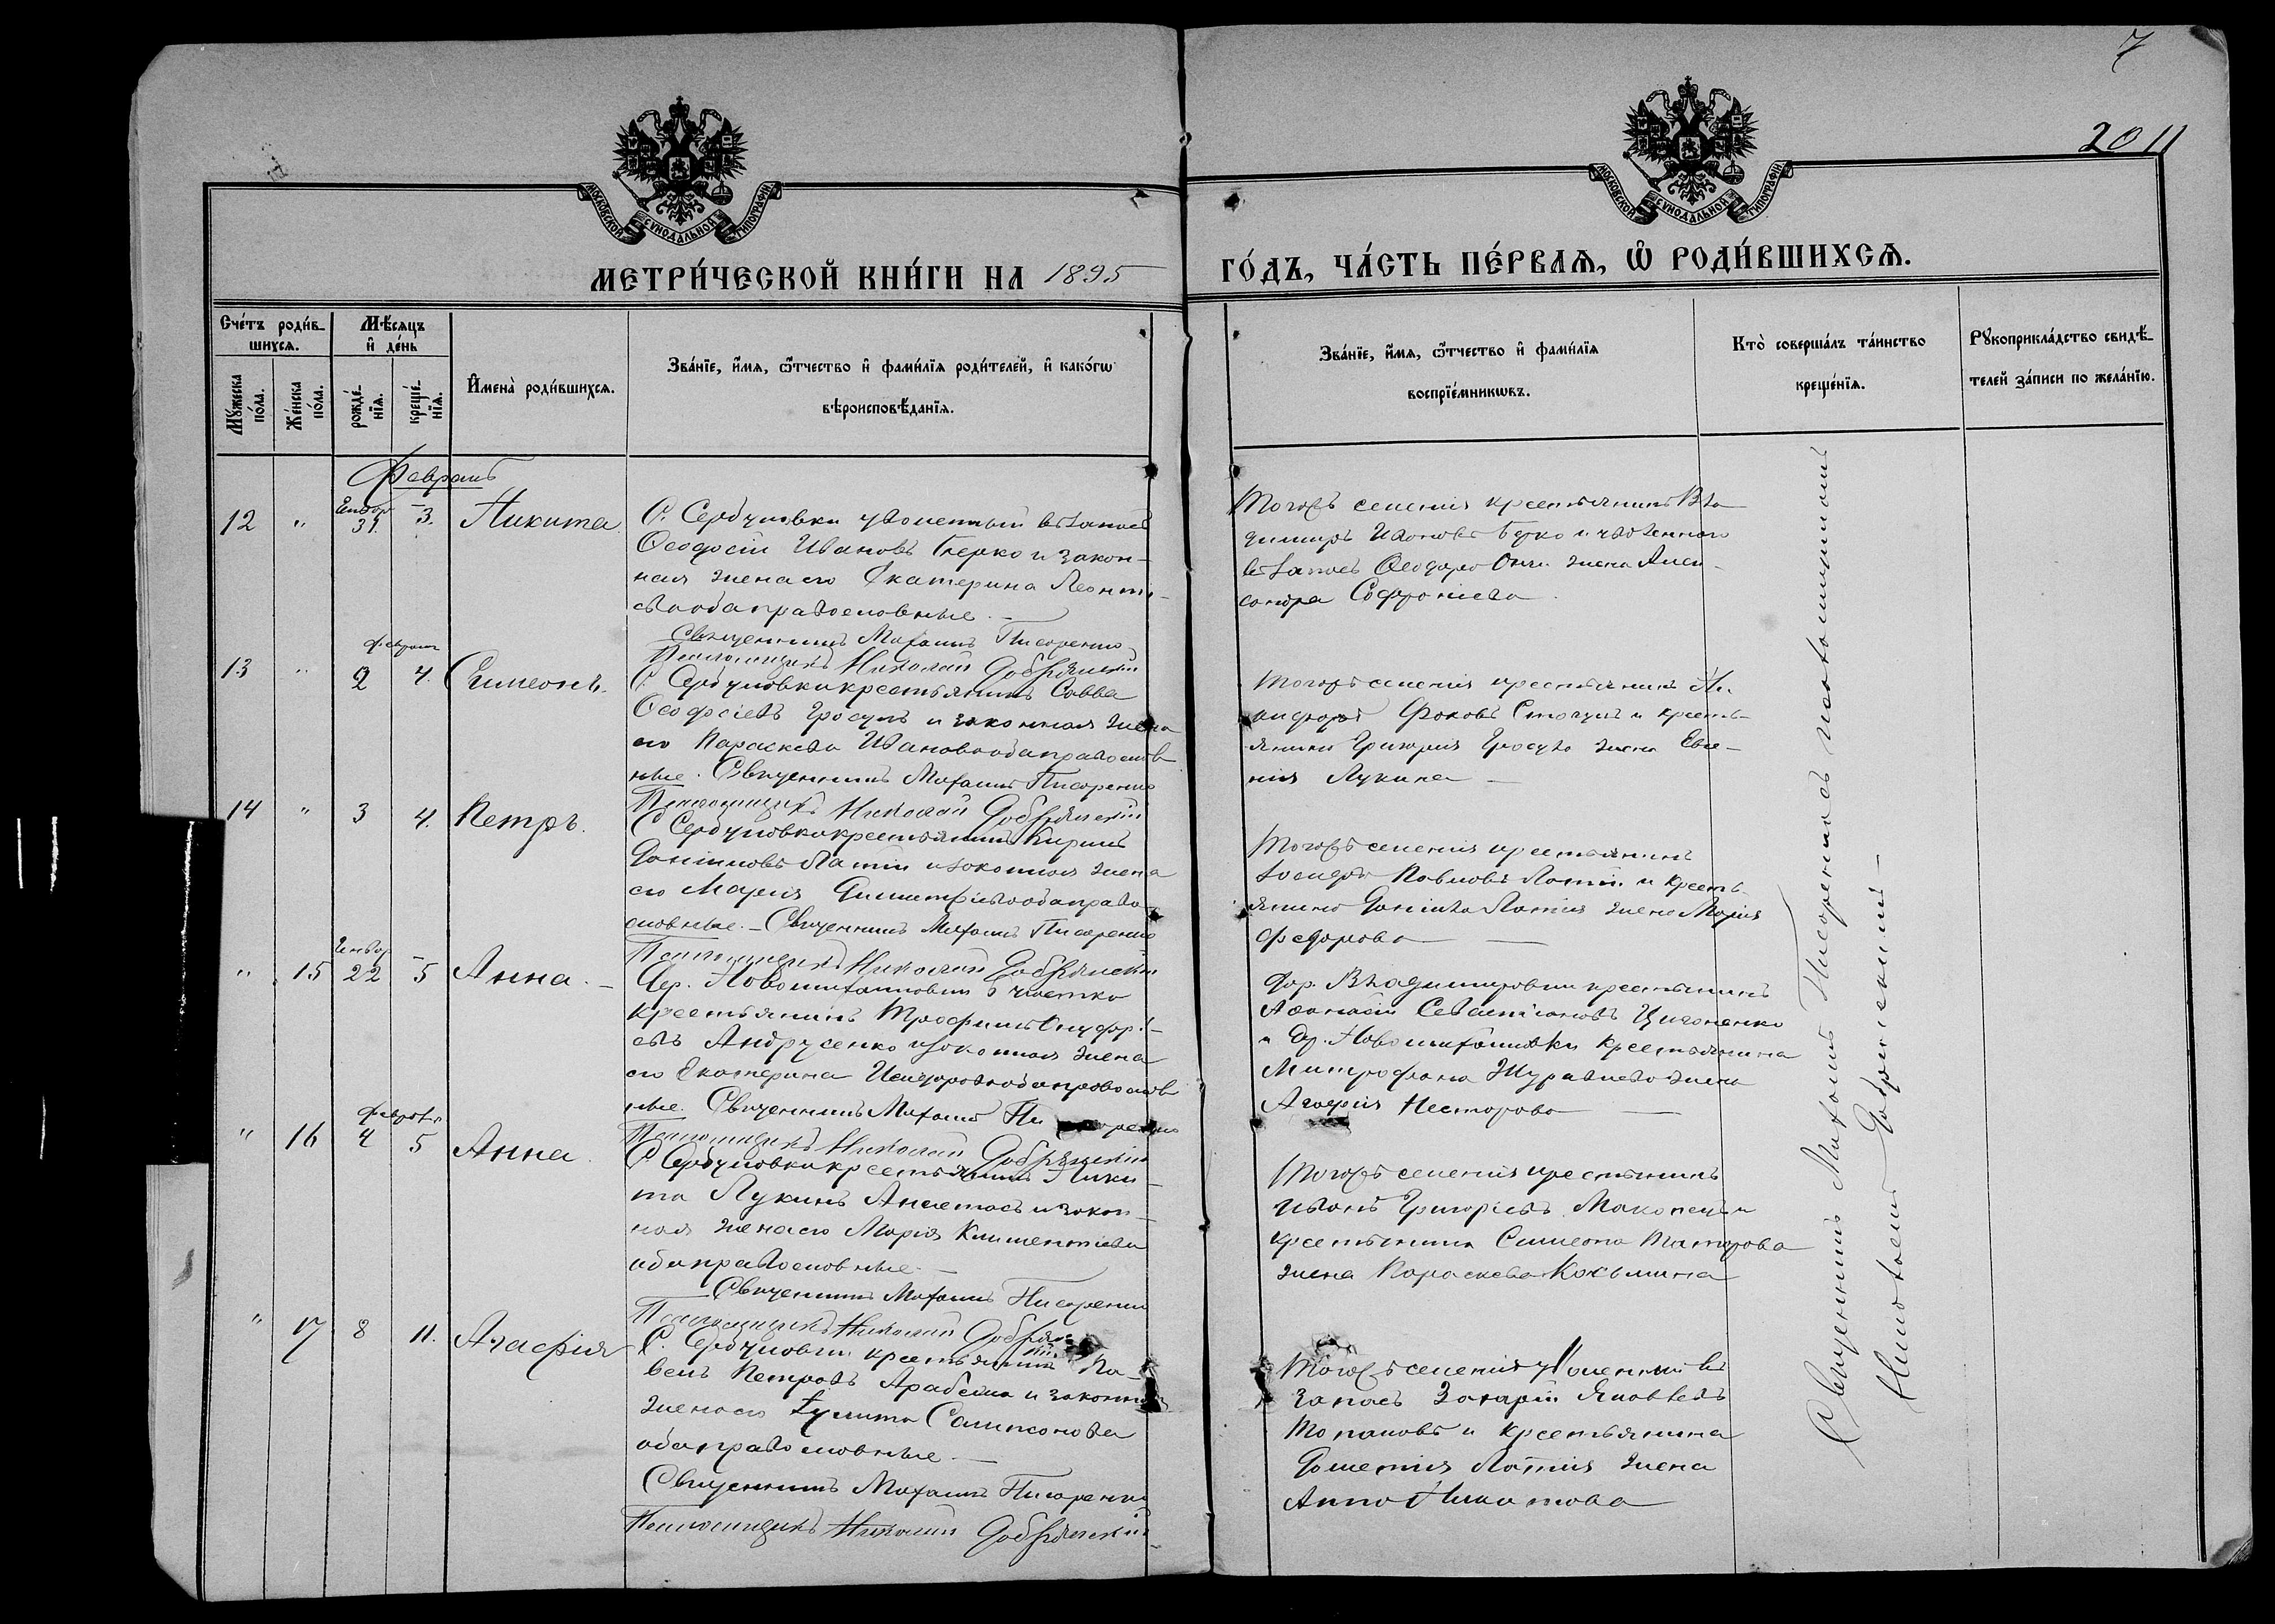 7
2011
МОСКОВСКОЙ СѴНОДАЛЬНОЙ ТИПОГРАФІИ
МОСКОВСКОЙ СѴНОДАЛЬНОЙ ТИПОГРАФІИ
МЕТРИ́ЧЕСКОЙ КНИ́ГИ НА 1895 ГО́ДЪ, ЧА́СТЬ ПЕ́РВАѦ, Ѡ҆ РОДИ́ВШИХСѦ.
Сче́тъ роди́вшихсѧ.
Мꙋ́жеска по́ла.
Же́нска по́ла.
Мѣ́сѧцъ и҆ де́нь
рожде́нїѧ.
креще́нїѧ.
И҆мена̀ роди́вшихсѧ.
Зва́нїе, и҆́мѧ, ѻ҆́тчество и҆ фами́лїѧ роди́телей, и҆ како́гѡ
вѣроисповѣ́данїѧ.
Зва́нїе, и҆́мѧ, ѻ҆́тчество и҆ фами́лїѧ
воспрїе́мникѡвъ.
Кто̀ соверша́лъ та́инство
креще́нїѧ.
Рꙋкоприкла́дство свидѣ́-
телей за́писи по жела́нїю.
Февраль
12 " 31. 3. Никита
С. Сербуловки уволенный въ запасъ
Ѳеодосій Ивановъ и закон-
ная жена его Екатерина Леонті-
ева оба православные. —
Священникъ Михаилъ Писаренко
Псаломщикъ Николай Добрянскій
Тогожъ селенія крестьянинъ Вла
димиръ Ивановъ и уволеннаго
въ запасъ Ѳеодора жена Алек-
сандра Софроніева.
13 " 2 4. Симеонъ.
С. Сербуловки крестьянинъ Савва
Ѳеодосіевъ Гросулъ и законная жена
его Параскева Иванова оба православ
ные. Священникъ Михаилъ Писаренко
Псаломщикъ Николай Добрянскій
Тогожъ селенія крестьянинъ
Фоковъ и кресть-
янина Григорія Гросула жена Евге-
нія Лукина —
14 " 3 4. Петръ.
С Сербуловки крестьянинъ Кирилъ
Даніиловъ Латій и законная жена
его Марія Димитріева оба право-
славные. — Священникъ Михаилъ Писаренко
Псаломщикъ Николай Добрянскій
Тогожъ селенія крестьянинъ
Павловъ Латій и кресть-
янина Даніила Латія жена Марія
Федорова —
" 15 22 5 Анна. —
Дер. Новомихайловки участка
крестьянинъ Трофимъ Онуфрі-
евъ Андрусенко и законная жена
его Екатерина Исидорова оба православ
ные. Священникъ Михаилъ Писаренко
Псаломщикъ Николай Добрянскій
Дер. Владимировки крестьянинъ
Аѳанасій Севастіановъ Цигоненко
и Др. Новомихайловки крестьянина
Митрофана Журавлева жена
Агафія Несторова —
" 16 4 5 Анна.
С Сербуловки крестьянинъ Ники-
та Лукинъ и закон-
ная жена его Марія Климентіева
оба православные. —
Священникъ Михаилъ Писаренко
Псаломщикъ Николай Добрянскій
Тогожъ селенія крестьянинъ
Иванъ Григорьевъ и
крестьянина Симеона
жена Параскева Козьмина
" 17 8 11. Агафія
С. Сербуловки крестьянинъ Па-
велъ Петровъ и законная
жена его Іулита Сампсонова
оба православные —
Священникъ Михаилъ Писаренко
Псаломщикъ Николай Добрянскій
Тогожъ селенія уволенный въ
запасъ Захарій Яковлевъ
и крестьянина
Дометія Латія жена
Анна —
Священникъ Михаилъ Писаренко съ псаломщикомъ
Николаемъ Добрянскимъ —